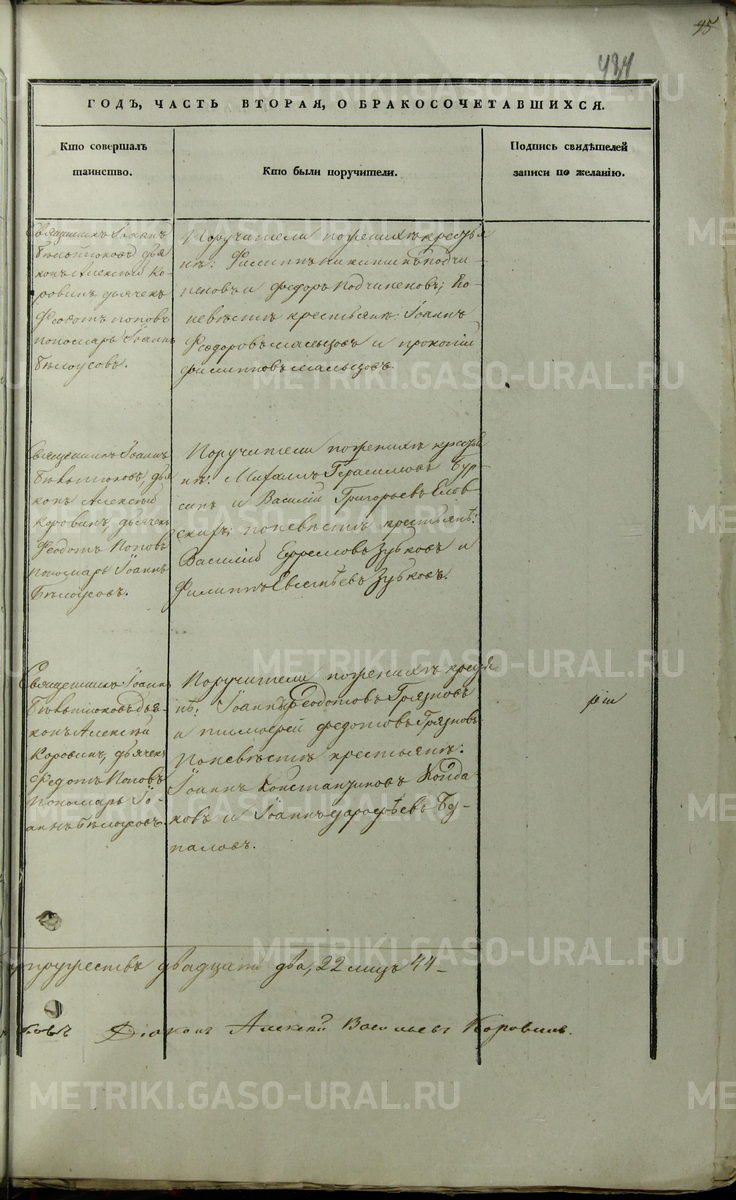 95
434
ГОДЪ, ЧАСТЬ ВТОРАЯ, О БРАКОСОЧЕТАВШИХСЯ.
Кто совершалъ
таинство.
Кто были поручители.
Подпись свидѣтелей
записи по желанію.
Священникъ Іоаннъ
дья
конъ Алексѣй Ко
ровинъ дьячекъ
Феодотъ Поповъ
пономарь Іоаннъ
Бѣлоусовъ.
Поручители по женихѣ крестья
нѣ: Филиппъ Никитинъ Подчи
неновъ и Федоръ Подчиненовъ; по
невѣстѣ крестьянѣ: Іоаннъ
Феодоровъ Мальцовъ и Прокопій
Филипповъ Мальцовъ.
Священникъ Іоаннъ
дья
конъ Алексѣй
Коровинъ, дьячекъ
Феодотъ Поповъ
пономарь Іоаннъ
Бѣлоусовъ.
Поручители по женихѣ крестья
нѣ: Михаилъ Герасимовъ Бур
синъ и Василій Григорьевъ Елов
скихъ; по невѣстѣ крестьянѣ:
Василій Ефремовъ Зубковъ и
Филиппъ Евсѣевъ Зубковъ.
Священникъ Іоаннъ
дья
конъ Алексѣй
Коровинъ, дьячекъ
Федотъ Поповъ
пономарь Іо
аннъ Бѣлоусовъ.
Поручители по женихѣ крестья
нѣ: Іоаннъ Феодотовъ Грязновъ
и Тимофей Федотовъ Грязновъ
по невѣстѣ крестьянѣ:
Іоаннъ Константиновъ Кайда
ковъ и Іоаннъ Дорофѣевъ Бу
паловъ.
супружествъ двадцать два, 22 лицъ 44
Діаконъ Алексѣй Васильевъ Коровинъ.
METRIKI.GASO-URAL.RU